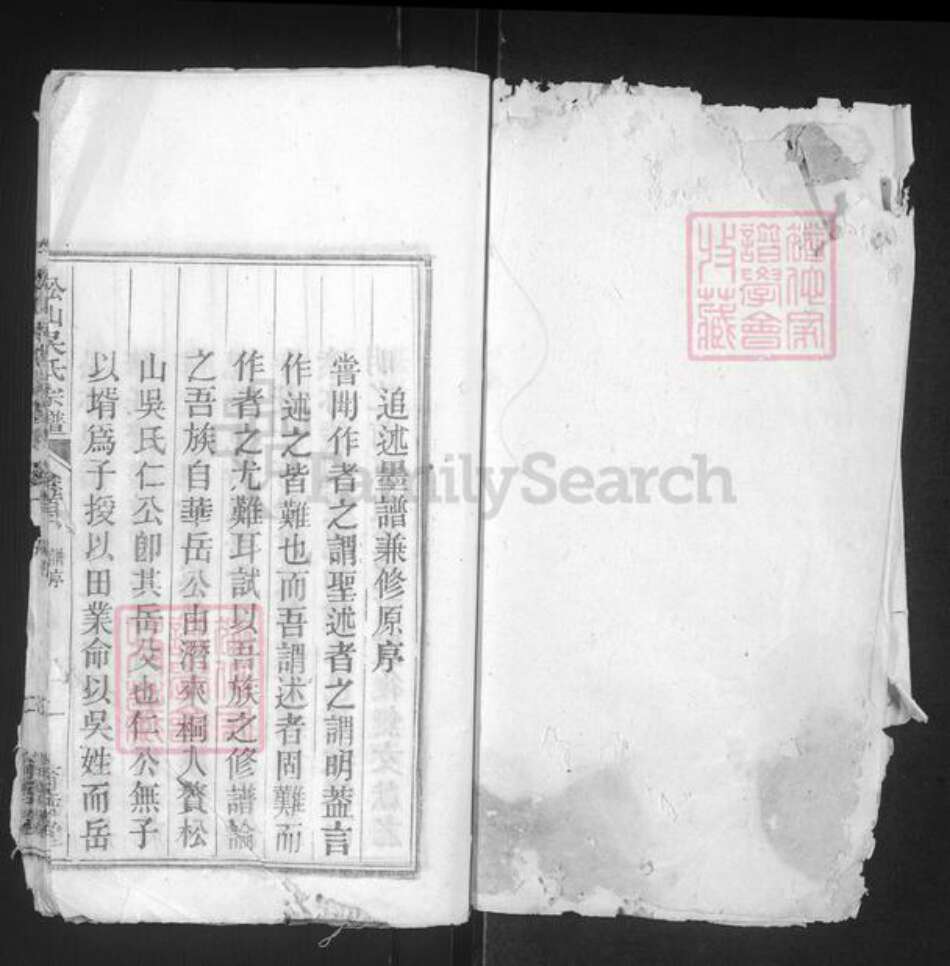 追述墨譜兼修原序
嘗聞作者之謂聖述者之謂明葢言
作述之皆難也而吾謂述者固難而
作者之尤難耳試以吾族之修譜論
之吾族自華岳公由潛來桐入贅松
山吳氏仁公卽其岳父也仁公無子
以壻爲子授以田業命以吳姓而岳
松山吳氏宗譜
譜序
一
譜學會
收藏
FamilySearch